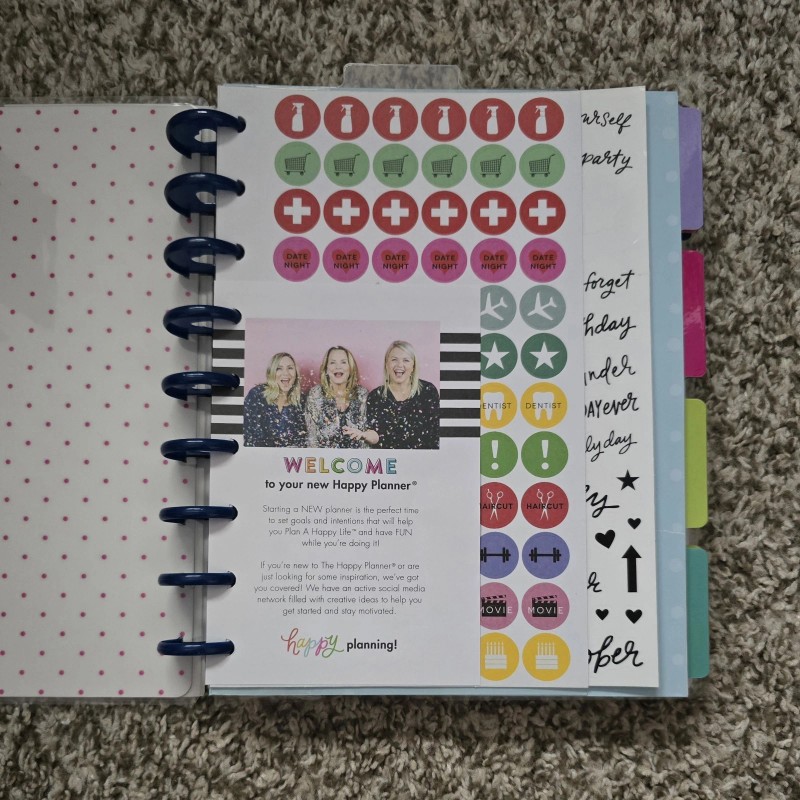 DATE NIGHT DATE NIGHT DATE NIGHT DATE NIGHT DATE NIGHT DATE NIGHT
WELCOME
to your new Happy Planner®
Starting a NEW planner is the perfect time
to set goals and intentions that will help
you Plan A Happy Life™ and have FUN
while you're doing it!
If you're new to The Happy Planner® or are
just looking for some inspiration, we've got
you covered! We have an active social media
network filled with creative ideas to help you
get started and stay motivated.
happy planning!
! !
ENTIST DENTIST
HAIRCUT HAIRCUT
MOVIE MOVIE
urself
party
forget
hday
nder
DAY ever
ly day
ober